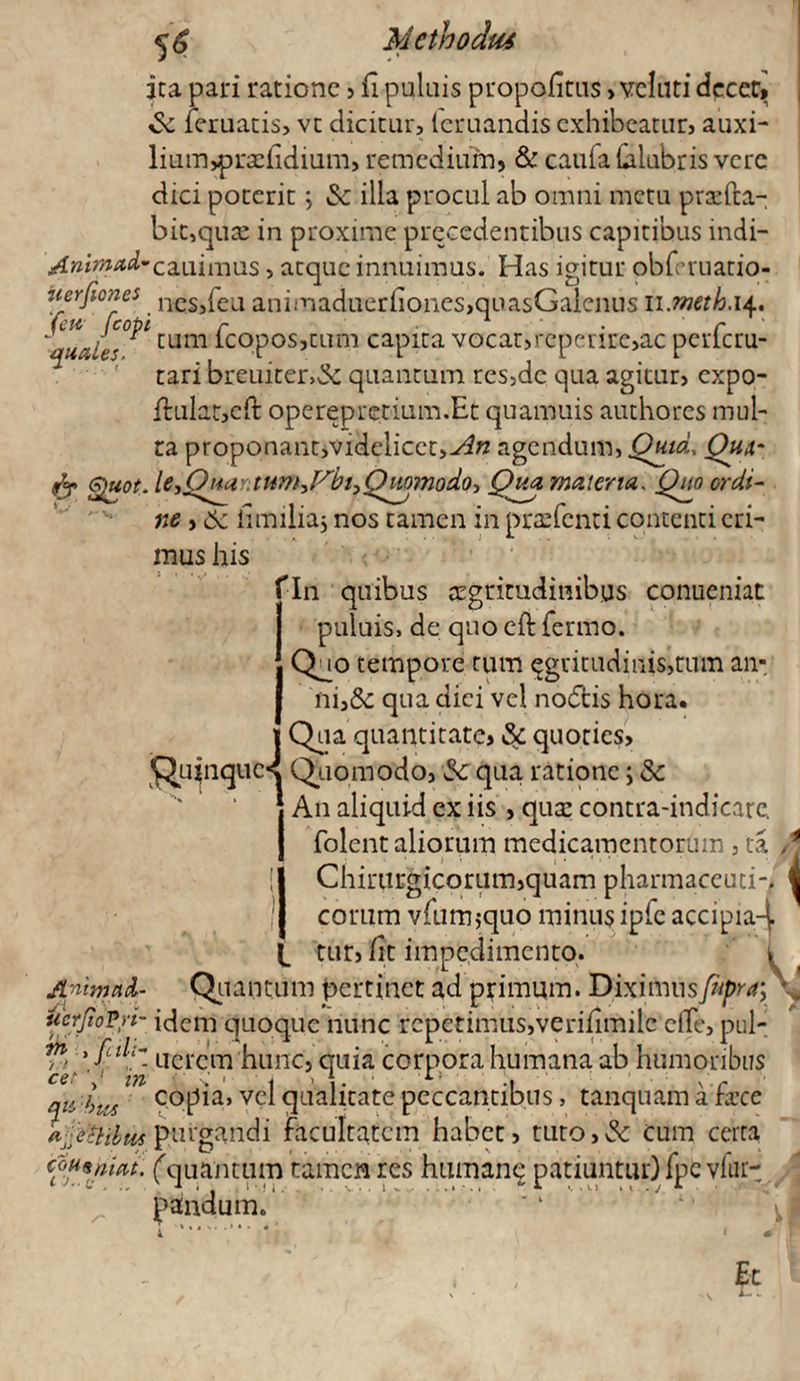 56 Methodus
ita pari ratione, si puluis propositus, veluti decet,
& seruatis, vt dicitur, seruandis exhibeatur, auxi-
lium, præsidium, remedium, & causa salubris vere
dici poterit; & illa procul ab omni metu præsta-
bit, quæ in proxime pręcedentibus capitibus indi-
cauimus, atque innuimus. Has igitur obseruatio-
nes, seu animaduersiones, quas Galenus 11.meth.14.
tum scopos, tum capita vocat, reperire, ac perscru-
tari breuiter, & quantum res, de qua agitur, expo-
stulat, est operępretium. Et quamuis authores mul-
ta proponant, videlicet, An agendum, Quid, Qua-
le, Quantum, Vbi, Quomodo, Qua materia, Quo ordi-
ne, & similia; nos tamen in præsenti contenti eri-
mus his
Animad-
uersiones
seu scopi
quales.
& Quot.
Quinque
In quibus ægritudinibus conueniat
puluis, de quo est sermo.
Quo tempore tum ęgritudinis, tum an-
ni, & qua diei vel noctis hora.
Qua quantitate, & quoties,
Quomodo, & qua ratione; &
An aliquid ex iis, quæ contra-indicare
solent aliorum medicamentorum, tã
Chirurgicorum, quam pharmaceuti-
corum vsum; quo minus ipse accipia-
tur, sit impedimento.
Quantum pertinet ad primum. Diximus supra;
idem quoque nunc repetimus, verisimile esse, pul-
uerem hunc, quia corpora humana ab humoribus
copia, vel qualitate peccantibus, tanquam à fæce
purgandi facultatem habet, tuto, & cum certa
(quantum tamen res humanę patiuntur) spe vsur-
pandum.
Animad-
uersio Pri-
scili-
cet in
quibus
affectibus
conueniat.
Et